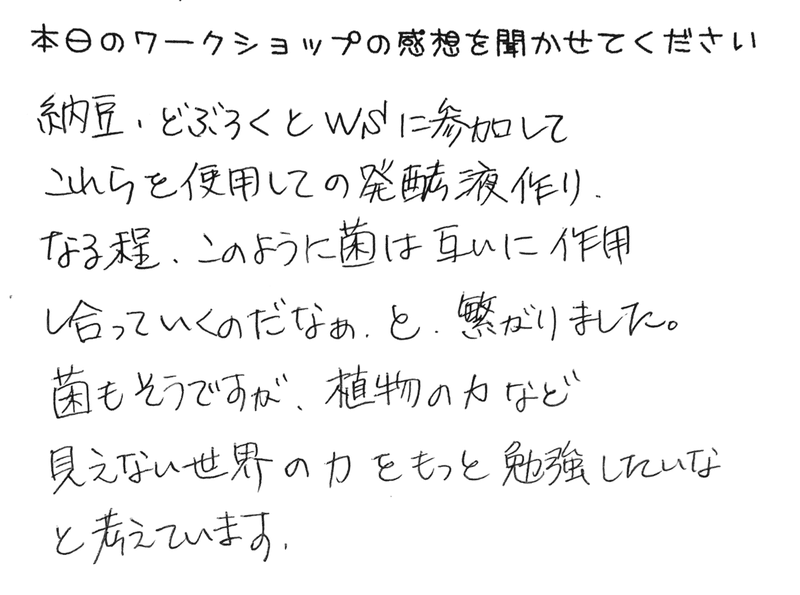 本日のワークショップの感想を聞かせてください
納豆、どぶろくとWSに参加して
これらを使用しての発酵液作り、
なる程、このように菌は互いに作用
し合っていくのだなぁ、と、繁がりました。
菌もそうですが、植物の力など
見えない世界の力をもっと勉強したいな
と考えています。